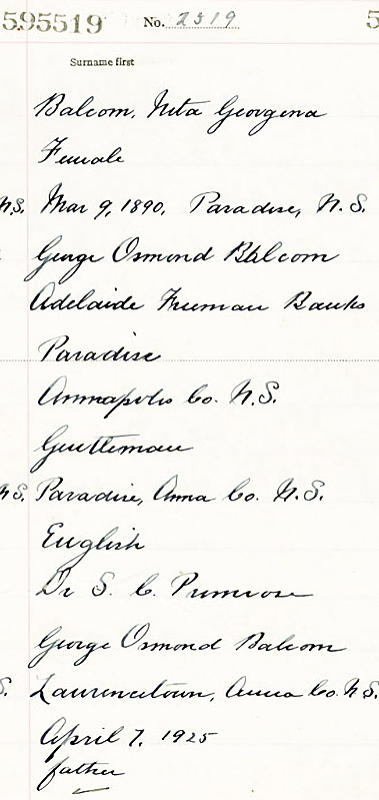 595519 No. 2519 5
Surname first
Balcom, Nita Georgena
Female
N.S. Mar 9, 1890, Paradise, N.S.
George Osmond Balcom
Adelaide Freeman Banks
Paradise
Annapolis Co. N.S.
Gentleman
N.S. Paradise, Anna Co. N.S.
English
Dr S. C. Primrose
George Osmond Balcom
S. Laurencetown, Anna Co. N.S.
April 7, 1925
father